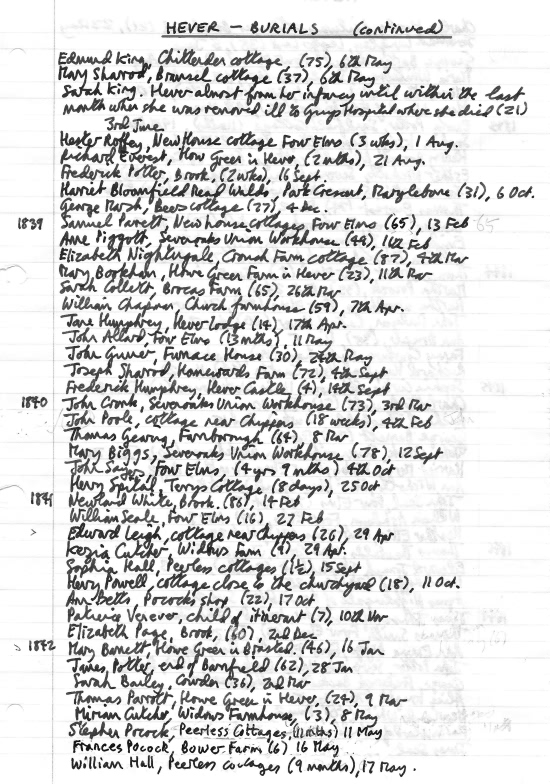 HEVER - BURIALS (continued)
Edmund King, Chittenden cottage, (75), 6th May
Mary Sharrod, Bramsel cottage (37), 6th May
Sarah King. Hever almost from her infancy until within the last
month when she was removed ill to Guys Hospital where she died (21)
3rd June
Hester Roffey, New House cottage Four Elms (3 wks), 1 Aug.
Richard Everest, How Green in Hever, (2 mths), 21 Aug.
Frederick Potter, Brook, (2 wks), 16 Sept.
Harriet Bloomfield Read Waldo, Park Crescent, Marylebone (31), 6 Oct.
George Marsh, Beers cottage (27), 4 Dec.
1839 Samuel Parrett, New house cottages Four Elms (65), 13 Feb 65
Ann Piggott, Sevenoaks Union Workhouse (48), 11th Feb
Elizabeth Nightingale, Cronsh Farm cottage (87), 4th Mar
Mary Borkham, Howe Green Farm in Hever (23), 11th Mar
Sarah Collett, Brocas Farm (65), 26th Mar
William Chapman Church farmhouse (59), 7th Apr.
Jane Humphrey, Hever Lodge (14), 17th Apr.
John Allard, Four Elms (13 mths), 11 May
John Gunner, Furnace House (30), 24th May
Joseph Sharrod, Homewards Farm (72), 4th Sept
Frederick Humphrey, Hever Castle, (4), 14th Sept
1840 John Cronk, Sevenoaks Union Workhouse (73), 3rd Mar
John Poole, cottage near Chippens (18 weeks), 4th Feb
Thomas Gearing, Farnborough (64), 8 Mar
Mary Biggs, Sevenoaks Union Workhouse (78), 12 Sept
John Sayers, Four Elms, (4 yrs 9 mths) 4th Oct
Henry Spital, Terrys Cottage (8 days), 25 Oct
1841 Newland White, Brook. (86), 14 Feb
William Seale, Four Elms (16), 27 Feb
Edward Leigh, cottage near Chippens (26), 29 Apr
Kezia Cutcher, Widows Farm (9), 29 Apr.
Sophia Hall, Peerless cottages (1½), 15 Sept
Henry Powell, cottage close to the churchyard (18), 11 Oct.
Ann Betts, Pococks shop (22), 17 Oct
Patience Verever, child of itinerant (7), 10th Nov
Elizabeth Page, Brook, (60), 2nd Dec
1842 Mary Barnett, Howe Green in Brasted, (46), 16 Jan
James, Potter, end of Barnfield (62), 28 Jan
Sarah Bailey, Cowden (36), 2nd Mar
Thomas Parrott, Howe Green in Hever, (24), 9 Mar
Miriam Cutcher, Widows Farmhouse, (3), 8 May
Stephen Pocock, Peerless Cottages, (11 mths) 11 May
Frances Pocock, Bower Farm (6) 16 May
William Hall, Peerless cottages (9 months), 17 May.